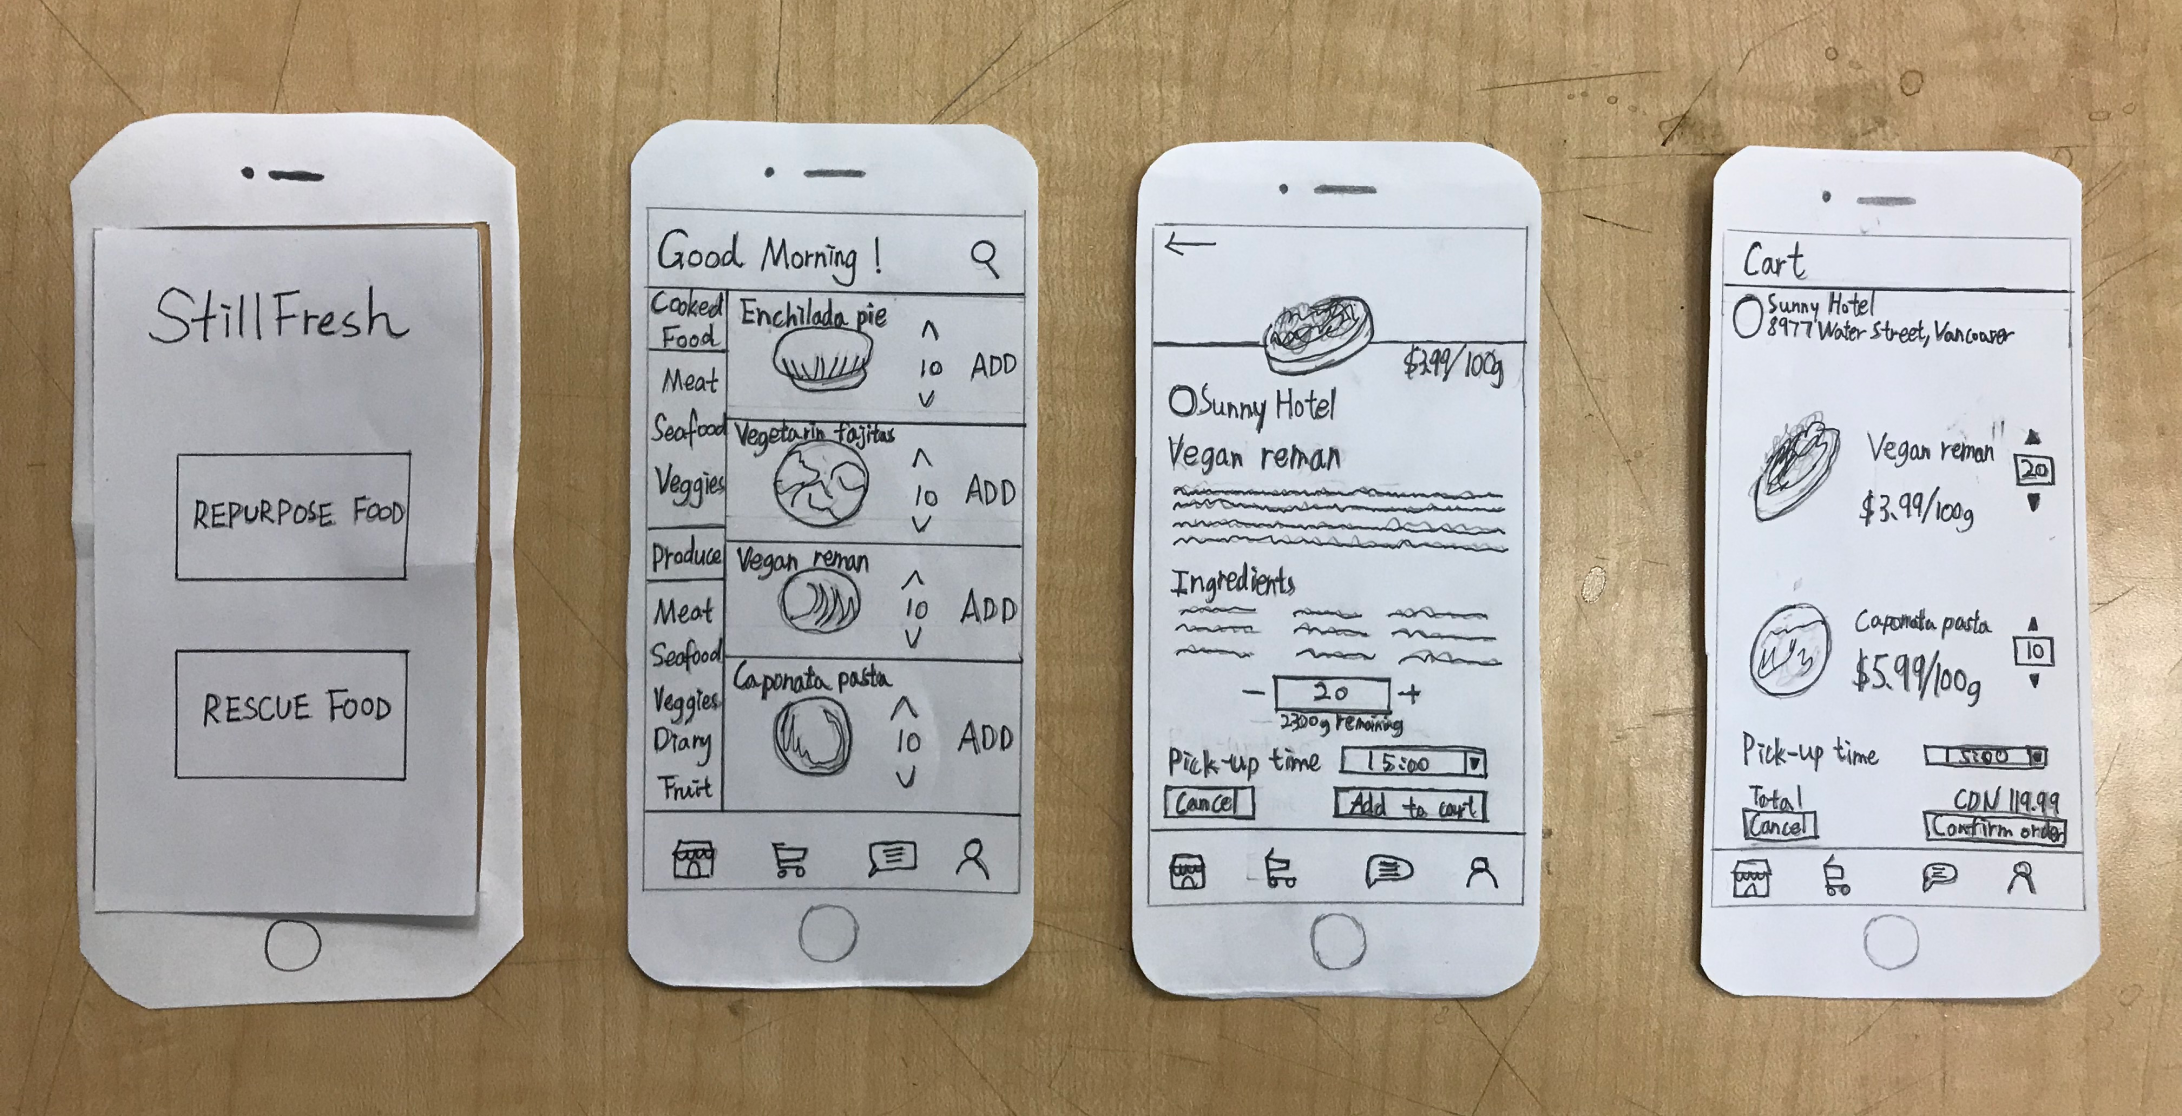 StillFresh
REPURPOSE FOOD
RESCUE FOOD
Good Morning !
Cooked
Food
Meat
Seafood
Veggies
Produce
Meat
Seafood
Veggies
Diary
Fruit
Enchilada pie
10
ADD
Vegetarin fajitas
10
ADD
Vegan reman
10
ADD
Caponata pasta
10
ADD
$3.99/100g
Sunny Hotel
Vegan reman
Ingredients
- 20 +
2300g remaining
Pick-up time 15:00
Cancel Add to cart
Cart
Sunny Hotel
8977 Water Street, Vancouver
Vegan reman
20
$3.99/100g
Caponata pasta
10
$5.99/100g
Pick-up time 15:00
Total CDN 119.99
Cancel Confirm order